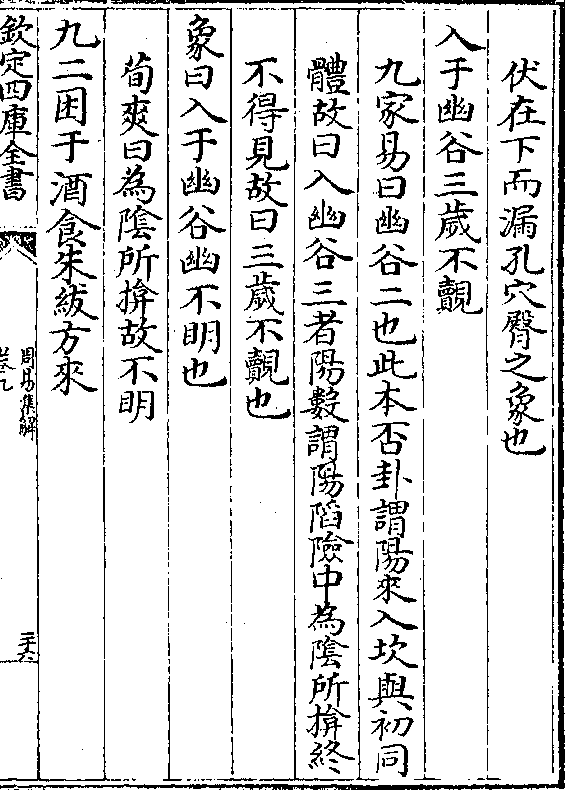 伏在下而漏孔穴臀之象也
入于幽谷三歲不覿
九家易曰幽谷二也此本否卦謂陽來入坎與初同
體故曰入幽谷三者陽數謂陽陷險中為陰所揜終
不得見故曰三歲不覿也
象曰入于幽谷幽不明也
荀爽曰為陰所揜故不明
九二困于酒食朱紱方來
欽定四庫全書
周易集解
卷九
二十六